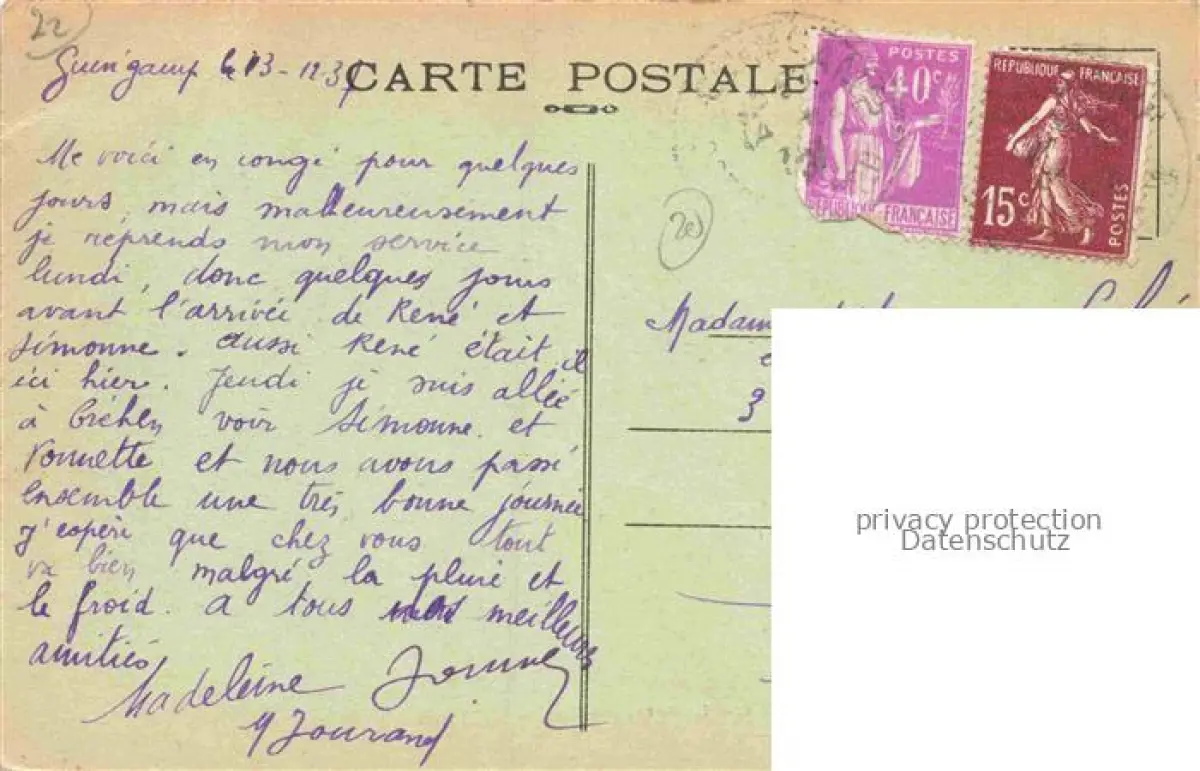 22
Guingamp le 13-12 37
CARTE POSTALE
POSTES
40c
REPUBLIQUE FRANÇAISE
REPUBLIQUE FRANÇAISE
15c
POSTES
Me voici en congé pour quelques
jours, mais malheureusement
je reprends mon service
lundi, donc quelques jours
avant l'arrivée de René et
Simonne. aussi René était il
ici hier. Jeudi je suis allée
à voir Simonne et
Vonnette et nous avons passé
ensemble une très bonne journée
J'espère que chez vous tout
va bien malgré la pluie et
le froid. a tous nos meilleures
amitiés
Madeleine
Y Jourand
Madam
3
privacy protection
Datenschutz